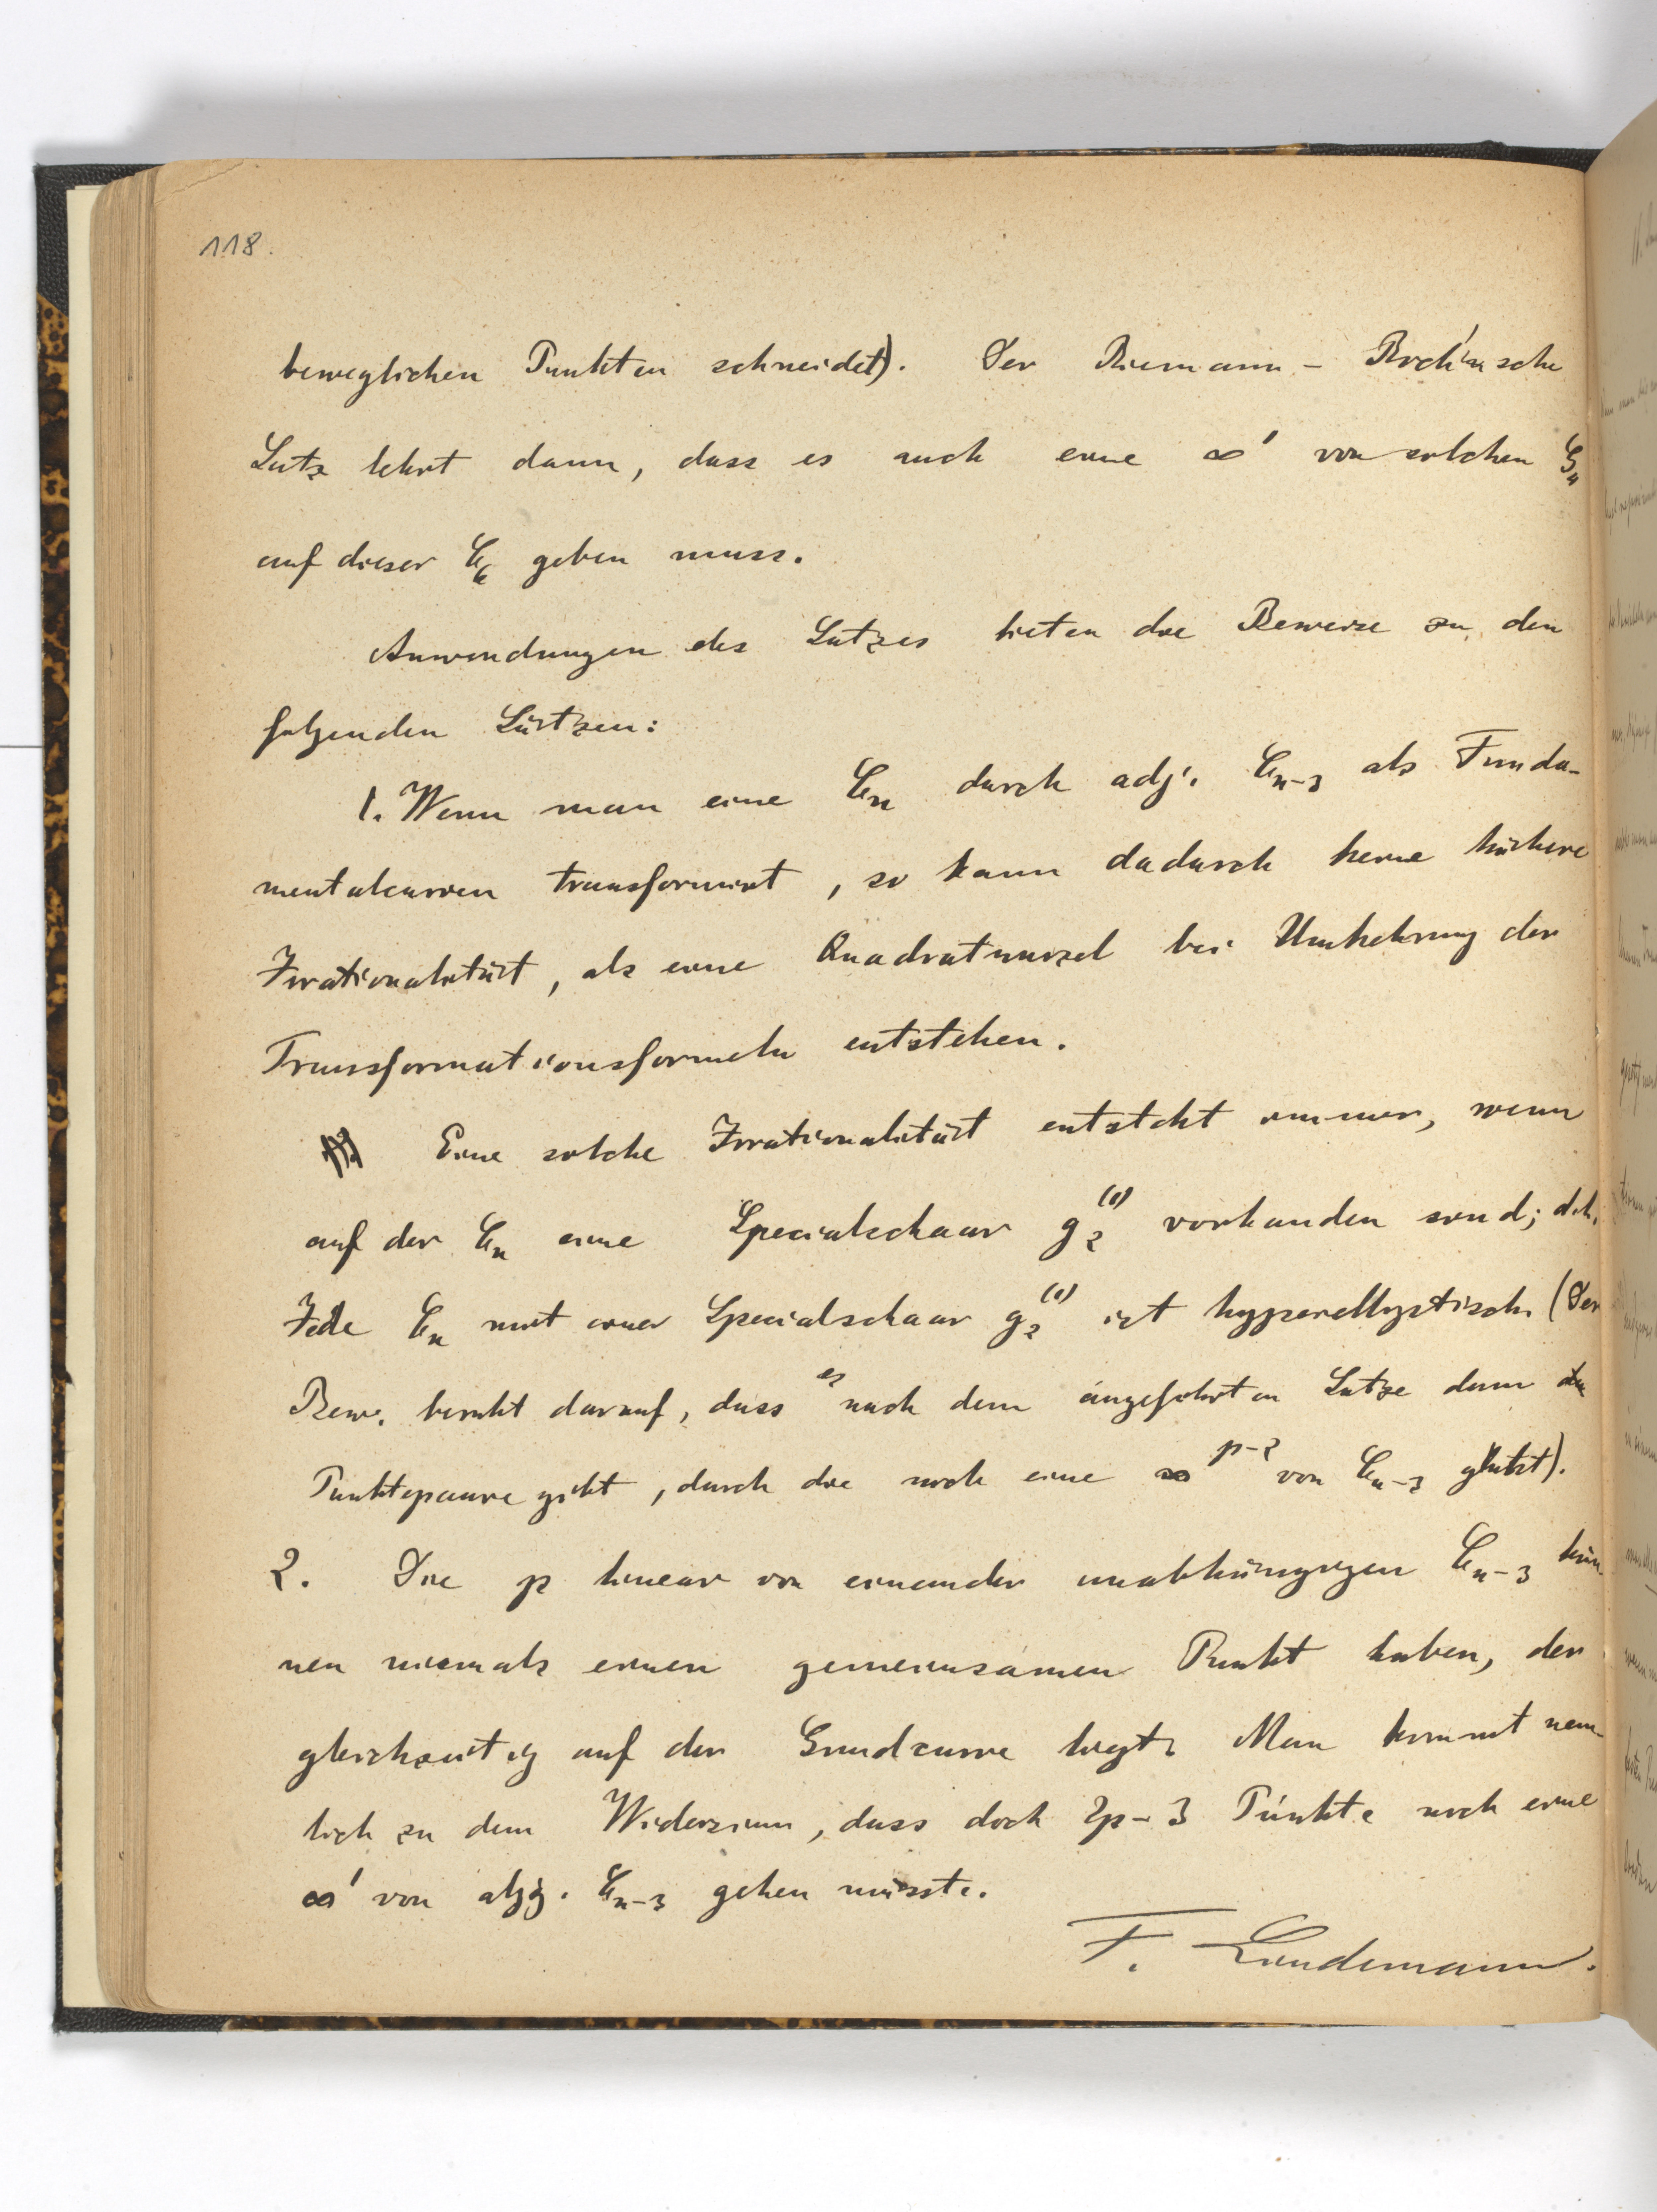 118.
beweglichen Punkten schneidet). Der Riemann-Roch'sche
Satz lehrt dann, dass es auch eine ∞¹ von solchen
auf dieser C₆ geben muss.
Anwendungen des Satzes bieten die Beweise zu den
folgenden Sätzen:
1. Wenn man eine Cₙ durch adj. Cₙ₋₃ als Funda-
mentalcurven transformirt, so kann dadurch keine höhere
Irrationalität, als eine Quadratwurzel bei Umkehrung der
Transformationsformeln entstehen.
Eine solche Irrationalität entsteht immer, wenn
auf der Cₙ eine Specialschaar g₂⁽¹⁾ vorhanden sind; d.h.
Jede Cₙ mit einer Specialschaar g₂⁽¹⁾ ist hyperelliptisch. (Der
Bew. beruht darauf, dass es nach dem angeführten Satze dann
Punktepaare gibt, durch die noch eine ∞ᵖ⁻² von Cₙ₋₃ geht).
2. Die p linear von einander unabhängigen Cₙ₋₃ kön-
nen niemals einen gemeinsamen Punkt haben, der
gleichzeitig auf der Grundcurve liegt. Man kommt näm-
lich zu dem Widersinn, dass doch 2p-3 Punkte noch eine
∞¹ von adj. Cₙ₋₃ gehen müsste.
F. Lindemann.